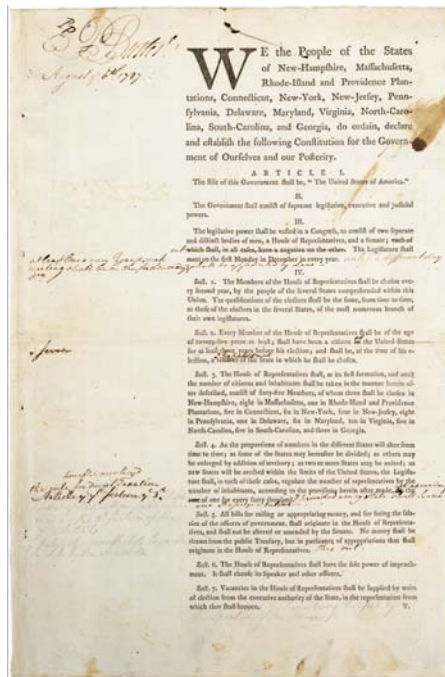 August 6th 1787
WE the People of the States
of New-Hampshire, Massachusetts,
Rhode-Island and Providence Plan-
tations, Connecticut, New-York, New-Jersey, Penn-
sylvania, Delaware, Maryland, Virginia, North-Caro-
lina, South-Carolina, and Georgia, do ordain, declare
and establish the following Constitution for the Govern-
ment of Ourselves and our Posterity.
ARTICLE I.
The stile of this Government shall be, "The United States of America."
II.
The Government shall consist of supreme legislative, executive and judicial
powers.
III.
The legislative power shall be vested in a Congress, to consist of two separate
and distinct bodies of men, a House of Representatives, and a Senate; each of
which shall, in all cases, have a negative on the other. The Legislature shall
meet on the first Monday in December in every year.
IV.
Sect. 1. The Members of the House of Representatives shall be chosen every
second year, by the people of the several States comprehended within this
Union. The qualifications of the electors shall be the same, from time to time,
as those of the electors in the several States, of the most numerous branch of
their own legislatures.
Sect. 2. Every Member of the House of Representatives shall be of the age
of twenty-five years at least; shall have been a citizen of the United States
seven
for at least three years before his election; and shall be, at the time of his e-
lection, a resident of the State in which he shall be chosen.
Sect. 3. The House of Representatives shall, at its first formation, and until
the number of citizens and inhabitants shall be taken in the manner herein after
described, consist of sixty-five Members, of whom three shall be chosen in
New-Hampshire, eight in Massachusetts, one in Rhode-Island and Providence
Plantations, five in Connecticut, six in New-York, four in New-Jersey, eight
in Pennsylvania, one in Delaware, six in Maryland, ten in Virginia, five in
North-Carolina, five in South-Carolina, and three in Georgia.
Sect. 4. As the proportions of numbers in the different States will alter from
time to time; as some of the States may hereafter be divided; as others may
be enlarged by addition of territory; as two or more States may be united; as
new States will be erected within the limits of the United States, the Legisla-
ture shall, in each of these cases, regulate the number of representatives by the
number of inhabitants, according to the provisions herein after made, at the
rate of one for every forty thousand.
Sect. 5. All bills for raising or appropriating money, and for fixing the sala-
ries of the officers of government, shall originate in the House of Representa-
tives, and shall not be altered or amended by the Senate. No money shall be
drawn from the public Treasury, but in pursuance of appropriations that shall
originate in the House of Representatives.
Sect. 6. The House of Representatives shall have the sole power of impeach-
ment. It shall choose its Speaker and other officers.
Sect. 7. Vacancies in the House of Representatives shall be supplied by writs
of election from the executive authority of the State, in the representation from
which they shall happen.
V.